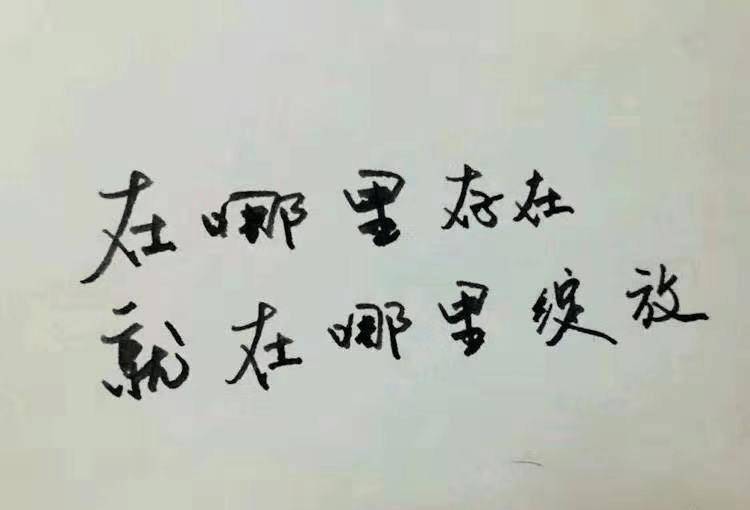 在哪里存在
就在哪里绽放